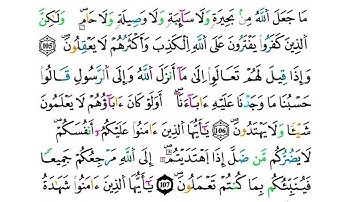 مَا جَعَلَ ٱللَّهُ مِنۢ بَحِيرَةٍ وَلَا سَآئِبَةٍ وَلَا وَصِيلَةٍ وَلَا حَامٍ وَلَٰكِنَّ
ٱلَّذِينَ كَفَرُوا۟ يَفْتَرُونَ عَلَى ٱللَّهِ ٱلْكَذِبَ وَأَكْثَرُهُمْ لَا يَعْقِلُونَ ١٠٥
وَإِذَا قِيلَ لَهُمْ تَعَالَوْا۟ إِلَىٰ مَآ أَنزَلَ ٱللَّهُ وَإِلَى ٱلرَّسُولِ قَالُوا۟
حَسْبُنَا مَا وَجَدْنَا عَلَيْهِ ءَابَآءَنَآ أَوَلَوْ كَانَ ءَابَآؤُهُمْ لَا يَعْلَمُونَ
شَيْـًٔا وَلَا يَهْتَدُونَ ١٠٦ يَٰٓأَيُّهَا ٱلَّذِينَ ءَامَنُوا۟ عَلَيْكُمْ أَنفُسَكُمْ
لَا يَضُرُّكُم مَّن ضَلَّ إِذَا ٱهْتَدَيْتُمْ إِلَى ٱللَّهِ مَرْجِعُكُمْ جَمِيعًا
فَيُنَبِّئُكُم بِمَا كُنتُمْ تَعْمَلُونَ ١٠٧ يَٰٓأَيُّهَا ٱلَّذِينَ ءَامَنُوا۟ شَهَٰدَةُ